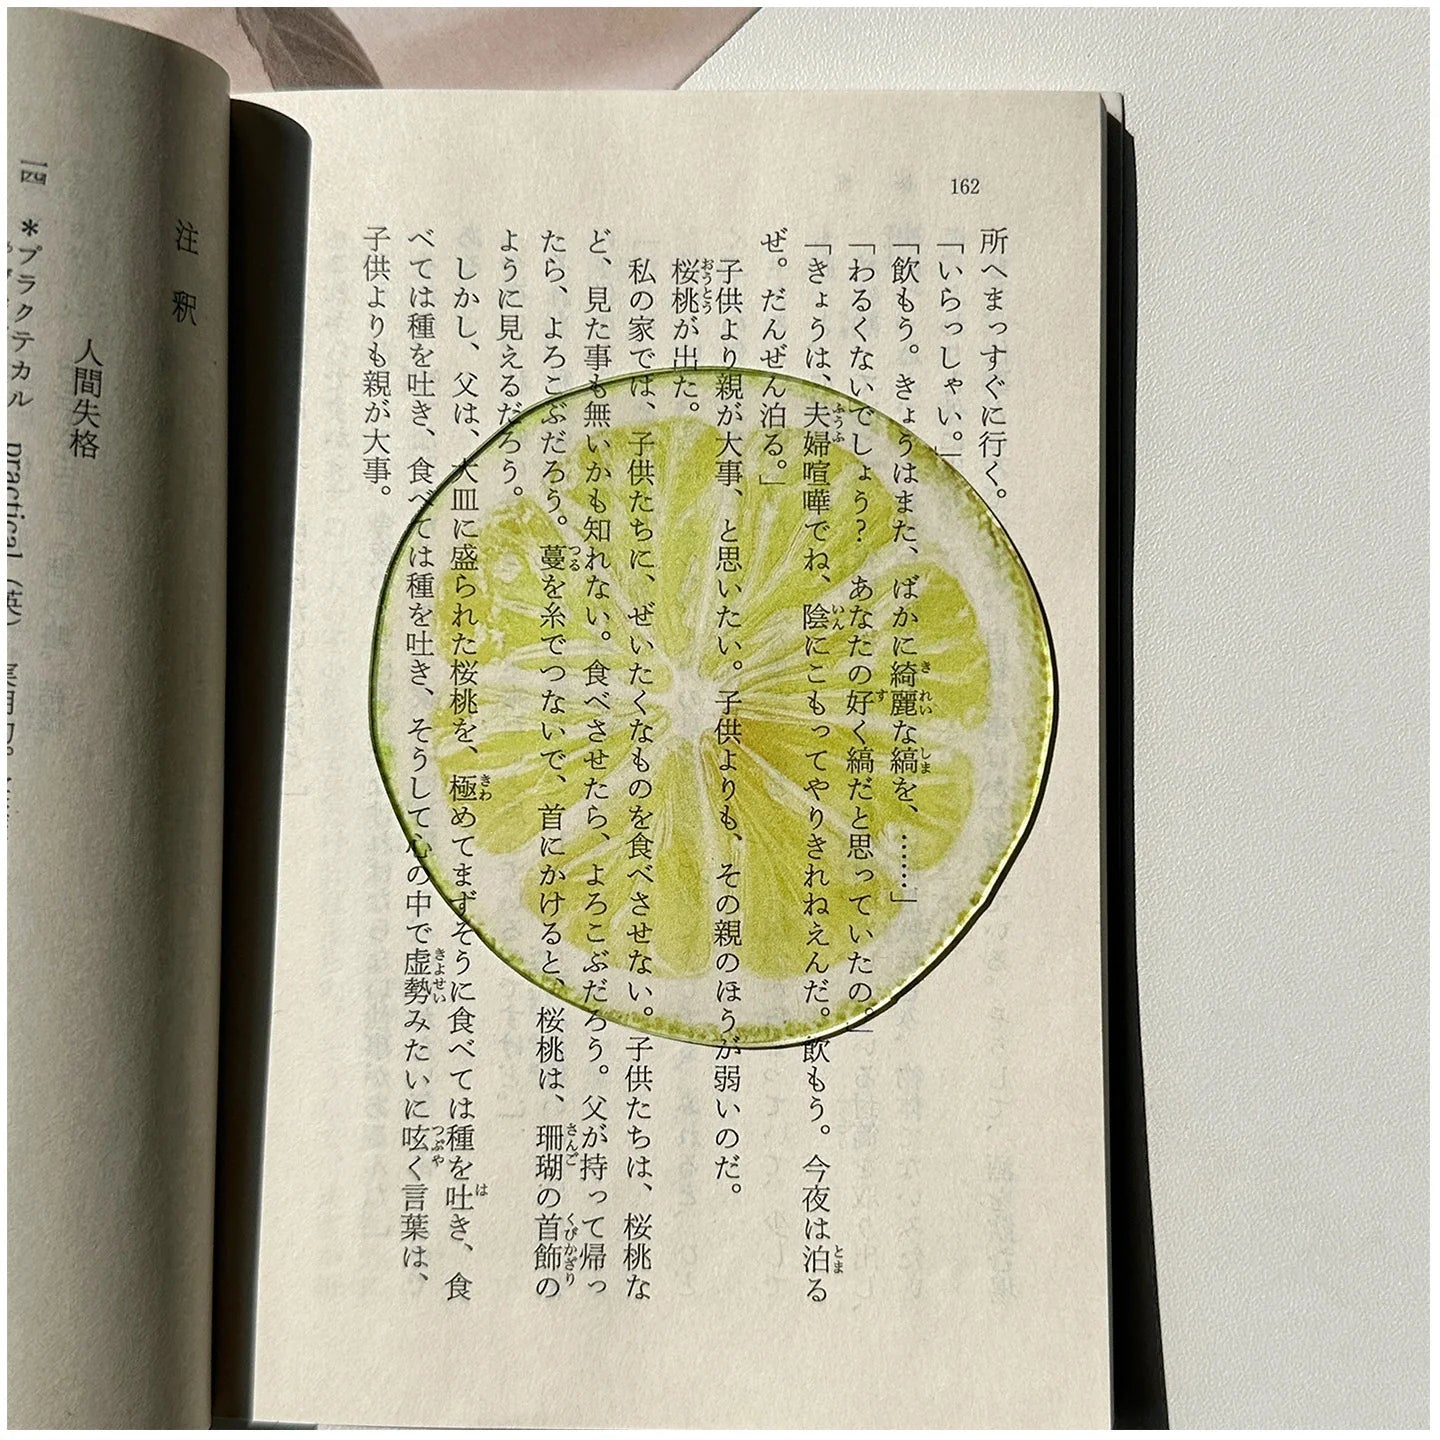 162
所へまっすぐに行く。
「いらっしゃい。」
「飲もう。きょうはまた、ばかに綺麗な縞を、……」
「わるくないでしょう？　あなたの好く縞だと思っていたの。」
「きょうは、夫婦喧嘩でね、陰にこもってやりきれねえんだ。飲もう。今夜は泊る
ぜ。だんぜん泊る。」
子供より親が大事、と思いたい。子供よりも、その親のほうが弱いのだ。
桜桃が出た。
私の家では、子供たちに、ぜいたくなものを食べさせない。子供たちは、桜桃な
ど、見た事も無いかも知れない。食べさせたら、よろこぶだろう。父が持って帰っ
たら、よろこぶだろう。蔓を糸でつないで、首にかけると、桜桃は、珊瑚の首飾の
ように見えるだろう。
しかし、父は、大皿に盛られた桜桃を、極めてまずそうに食べては種を吐き、食
べては種を吐き、食べては種を吐き、そうして心の中で虚勢みたいに呟く言葉は、
子供よりも親が大事。
注釈
人間失格
一四　＊プラクテカル　practical（英）実用的。